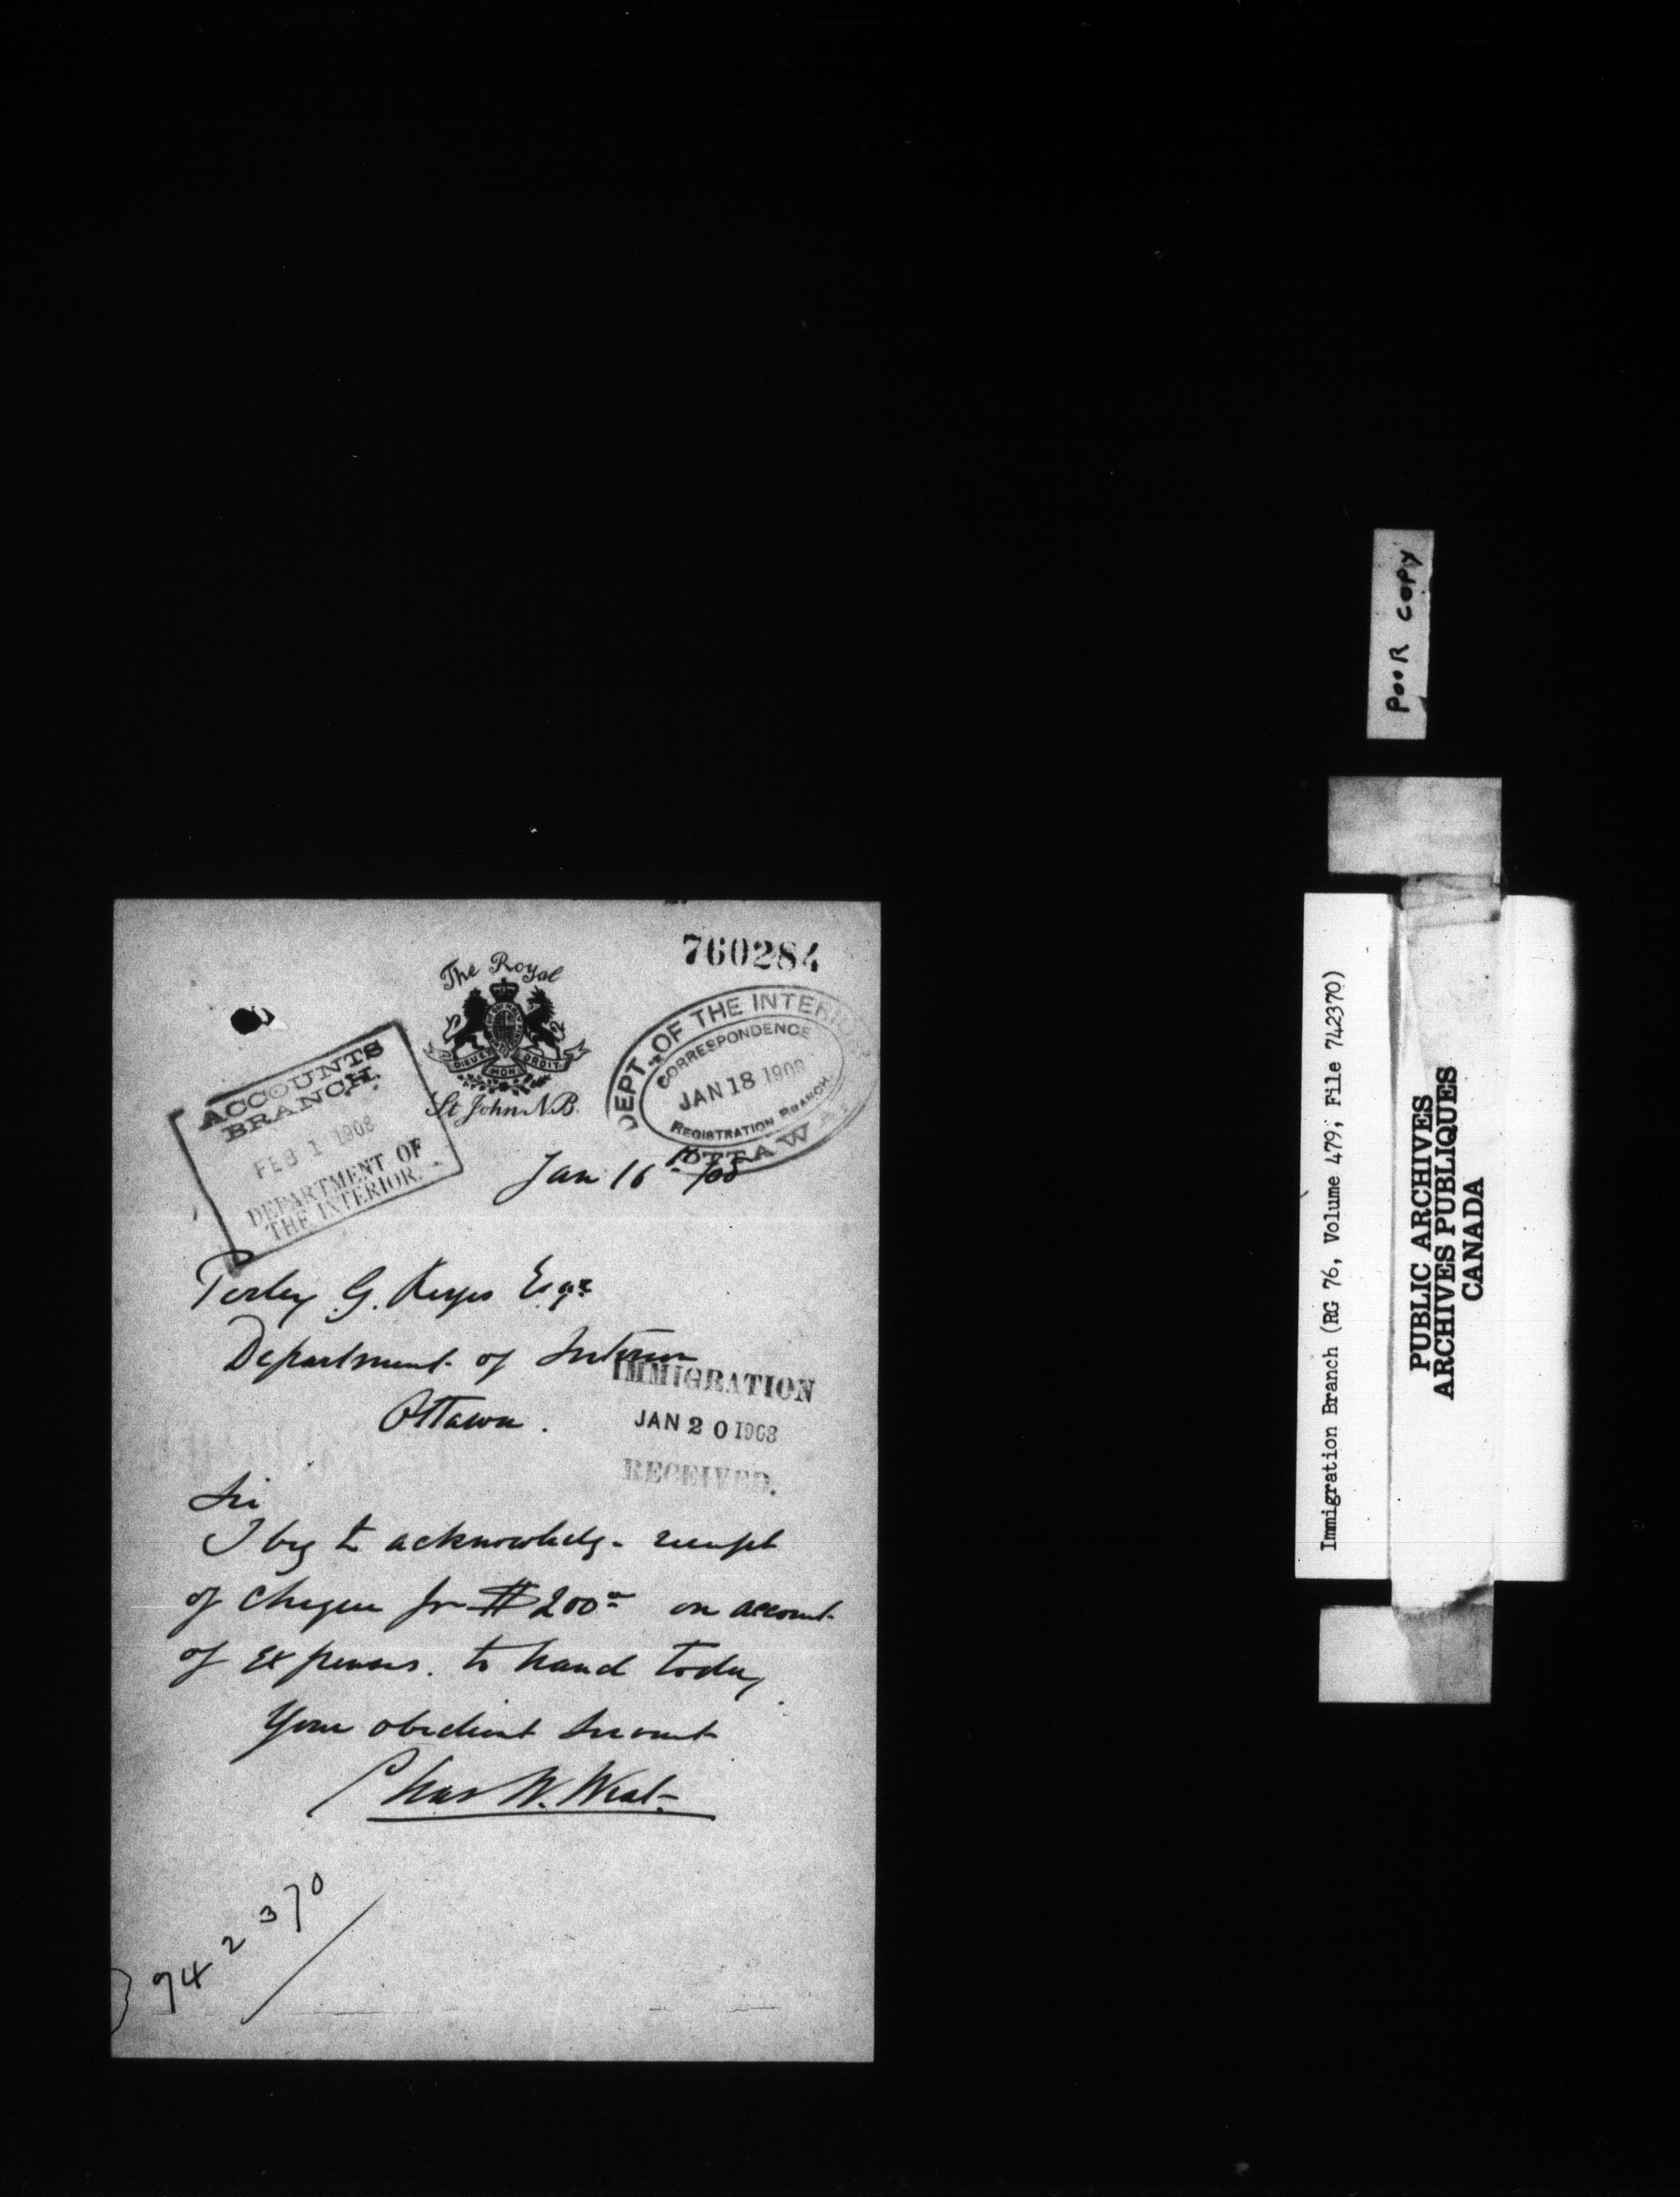 760284
The Royal
DIEU ET MON DROIT
St John N.B.
ACCOUNTS
BRANCH.
FEB 1 1908
DEPARTMENT OF
THE INTERIOR.
DEPT. OF THE INTERIOR
CORRESPONDENCE
JAN 18 1908
REGISTRATION BRANCH.
OTTAWA
Jan 16th /08
Perley G. Keyes Esqre
Department of Interior
Ottawa.
IMMIGRATION
JAN 20 1908
RECEIVED.
Sir
I beg to acknowledge receipt
of cheque for $200 on account
of expenses. to hand today
Your obedient Servant
Chas W. West
742370
POOR COPY
Immigration Branch (RG 76, Volume 479, File 742370)
PUBLIC ARCHIVES
ARCHIVES PUBLIQUES
CANADA